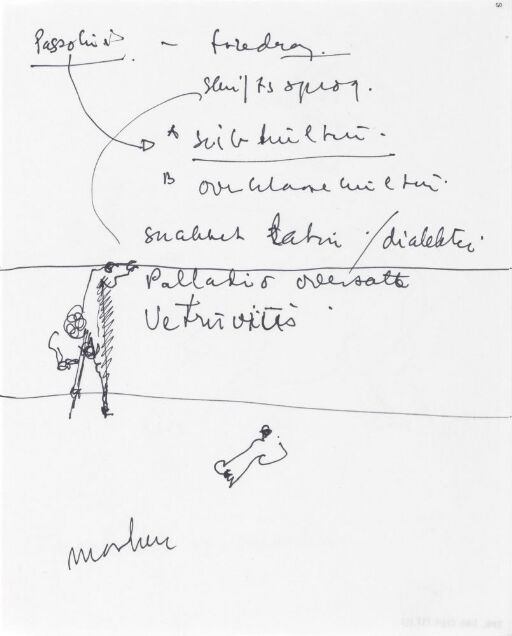 Passolini – foredrag.
skriftsprog.
A subkultur.
B overklassekultur.
snakket latin / dialekter.
Palladio oversatte
Vetruvius